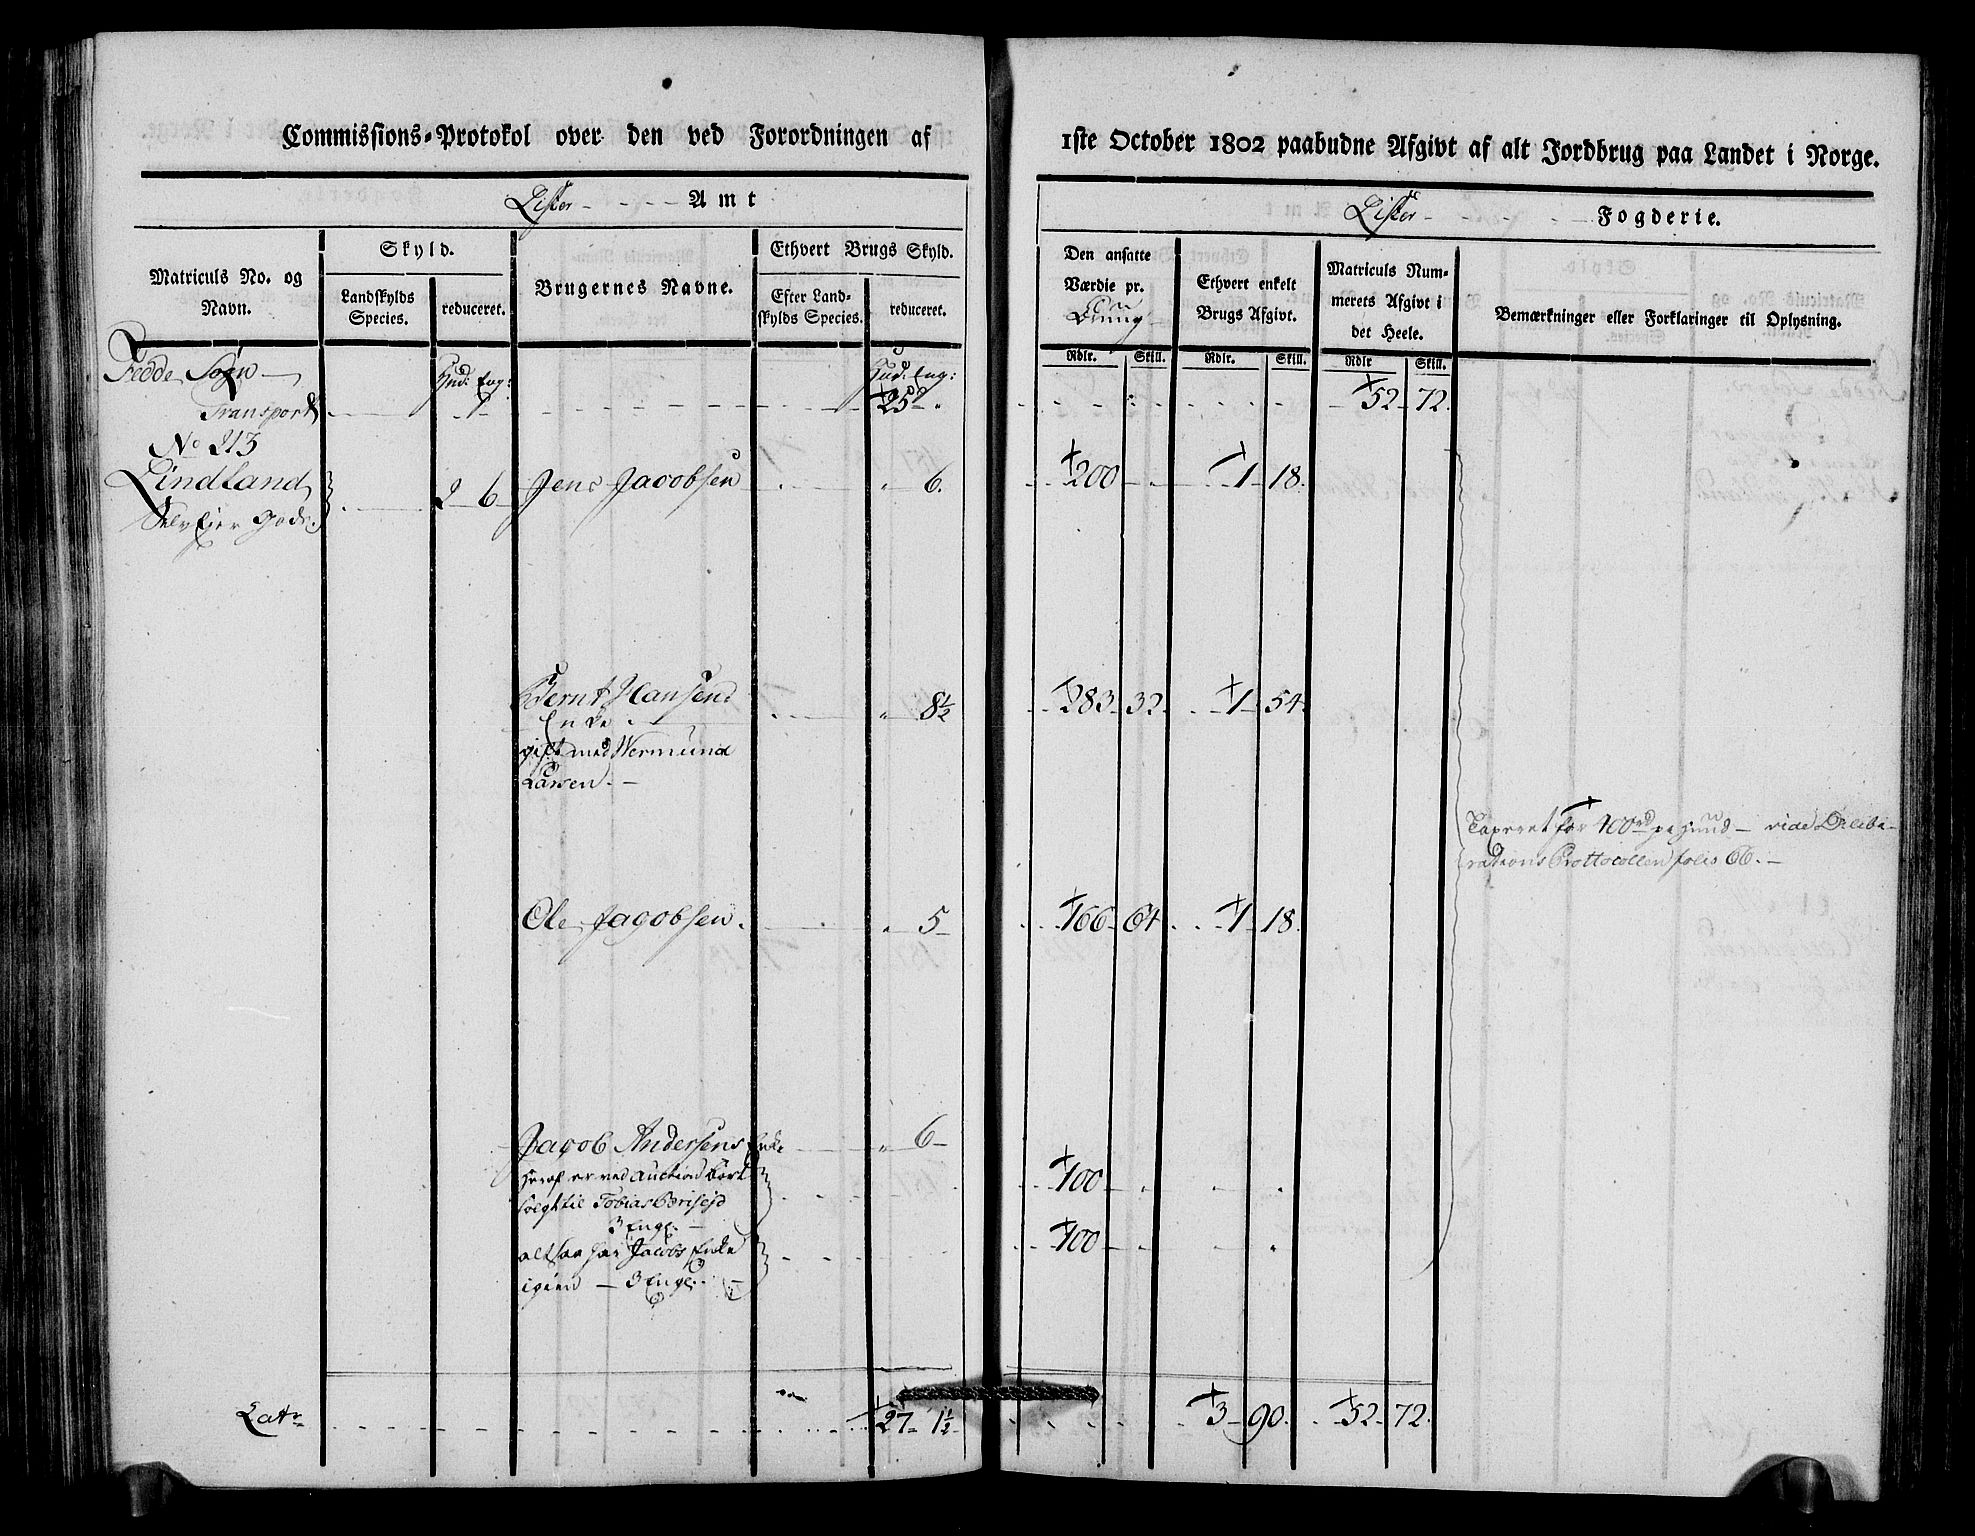 Commissions-Protokol over den ved Forordningen af
Lister Amt
Matriculs No. og Navn.
Skyld.
Landskylds Species.
reduceret.
Brugernes Navne.
Ethvert Brugs Skyld.
Efter Landskylds Species.
reduceret.
Fedde Sogn
Hud: Eng:
Hud: Eng:
Transport
25
No 213
Lindland
2 6
Jens Jacobsen
6.
Selv Eier Gods.
Bernt Hansens
8½
Enke
gift med Wermund
Larsen.
Ole Jacobsen.
5
Jacob Andersens Enke
6
heraf er ved Auction bort
solgt til Tobias
3 Eng.
altsaa har Jacobs Enke
igien 3 Eng.
Latr
27 1½
1ste October 1802 paabudne Afgivt af alt Jordbrug paa Landet i Norge.
Lister Fogderie.
Den ansatte Værdie pr.
Ethvert enkelt Brugs Afgivt.
Matriculs Nummerets Afgivt i det Heele.
Bemærkninger eller Forklaringer til Oplysning.
Rdlr. Skill. Rdlr. Skill. Rdlr Skill.
52 72.
200 1 18.
283 32. 1 54.
Taxeret for 400rd pr Hud vide Delibe-
rations Prottocollen folio 66.
166 64 1 18.
100
100
3 90. 52 72.